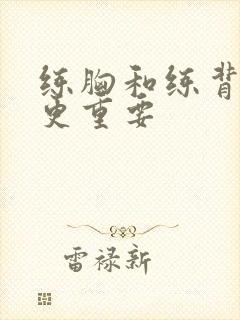 练胸和练背
更重要
雷禄新